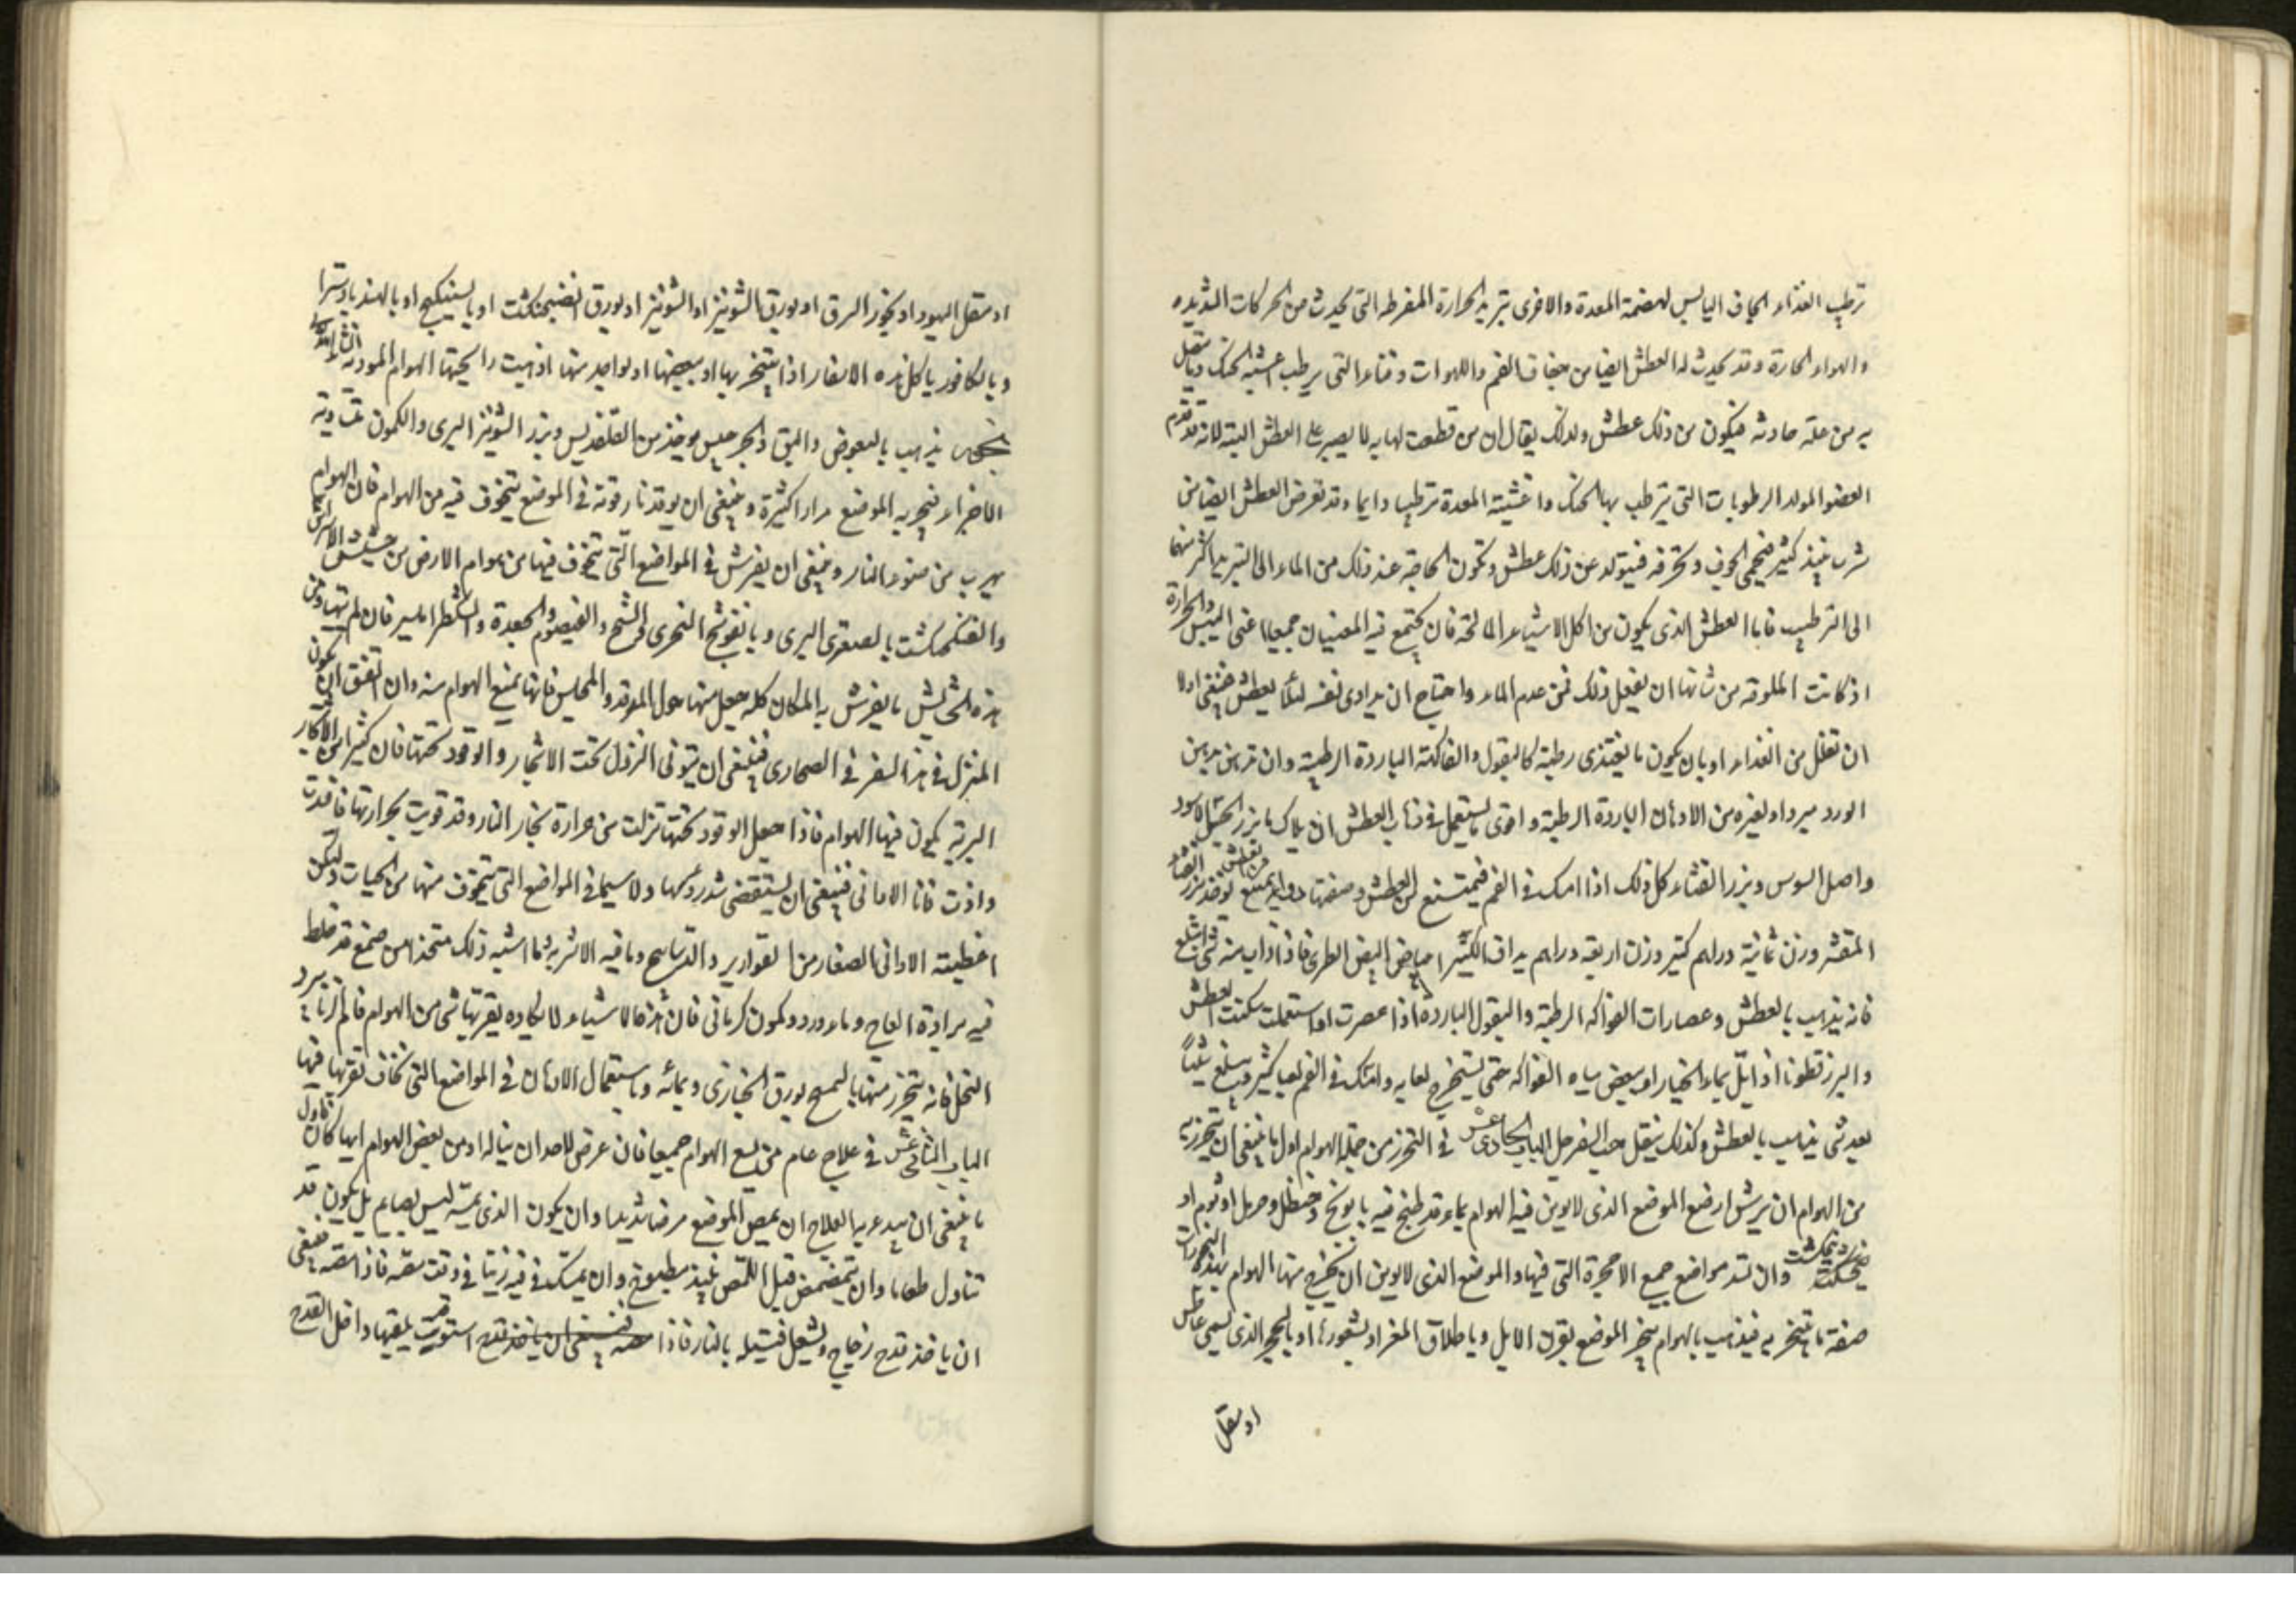 ترطيب الغذاء الجاف اليابس لهضمة المعدة والاخرى تبريد الحرارة المفرطة التى تحدث من الحركات الشديده
والهواء الحارة وقد يحدث له العطش ايضا من جفاف الفم واللهوات وفناء التى يرطب اغشية الحنك وما يتصل
به من علة حادثه فيكون من ذلك عطش ولذلك يقال ان من قطعت لهاته لا يصبر على العطش البتة لانه قد عدم
العضو المولد الرطوبات التى يترطب بها الحنك واغشيته المعدة ترطيبا دايما وقد تعرض العطش ايضا من
شرب نبيذ كثير فيحمى الجوف وتحرقه فيتولد عن ذلك عطش وتكون الحاجة عند ذلك من الماء الى التبريد اكثر منها
الى الترطيب فاما العطش الذى يكون من اكل الاشياء المالحة فان يجتمع فيه المعنيان جميعا اعنى اليبس والحرارة
اذ كانت الملوحة من شانها ان يفعل ذلك فمن عدم الماء واحتاج ان يداوى نفسه لئلا يعطش فينبغى اولا
ان تقلل من الغذاء او بان يكون ما يغتذى رطبة كالبقول والفاكهة الباردة الرطبة وان تدهن بدهن
الورد مبردا ولغيره من الادهان الباردة الرطبة واقوى ما يستعمل فى ذهاب العطش ان يماك ما بزر الخس الاسود
واصل السوس وبزر القثاء كل ذلك اذا امسك فى الفم فيمتنع من العطش وصفتها دواء يمنع من العطش يوخذ بزر القثاء
المقشر وزن ثمانية دراهم كثير وزن اربعة دراهم يداف الكثيرا ببياض البيض الطرى فاذا ذاب منه شى ابتلع
فانه يذهب بالعطش وعصارات الفواكه الرطبة والبقول الباردة اذا عصرت او استعملت سكنت العطش
والبرزقطونا اذا بلّ بماء الخيار او ببعض مياه الفواكه حتى يستخرج لعابه وامسك فى الفم لعاب كثير ويبتلع شيئاً
بعد شى يذهب بالعطش وكذلك يفعل حب السفرجل الباب الحادى عشر فى التحرز من جملة الهوام اول ما ينبغى ان يتحرز به
من الهوام ان يرش ارض الموضع الذى لا يومن فيه الهوام بماء قد طبخ فيه بابونج وحنظل وحرمل او ثوم او
فنجنكشت وان تسد مواضع جمع الاجحرة التى فيها والموضع الذى لا يومن ان يخرج منها الهوام بهذه البخورات
صفة ما يتبخر به فيذهب بالهوام يبخر الموضع بقرن الايل وباظلاف المعز او بشعورها او بالحجر الذى يسمى غاطس
او مقل
او مقل اليهود او بخور السرق او بورق الشونيز او الشونيز او بورق الفنجنكشت او بالسكبينج او بالجندبادستر او
وبالكافور باكل هذه الاشفار اذا يتبخر بها او ببعضها او بواحد منها اذهبت رائحتها الهوام الموذية ان شاء الله
بخور يذهب بالبعوض والبق والجرجيس يوخذ من القلقديس وبزر الشونيز البرى والكمون متساوية
الاجزاء فيبخر به الموضع مرارا كثيرة وينبغى ان يوقد نار قوته فى الموضع يتخوف فيه من الهوام فان الهوام
يهرب من ضوء النار وينبغى ان يفرش فى المواضع التى يتخوف فيها من هوام الارض من حشيش الراسن
والفنجنكشت بالصعترى البرى وبالفوتنج النهرى والشيح والقيصوم والجعدة والشطر امليز فان لم يتهيا من
هذه الحشايش ما يفرش به المكان كله جعل منها حول المرقد والمجلس فانها تمنع الهوام منه وان اتفق ان يكون
المنزل فى هذا السفر فى الصحارى فينبغى ان يتوقى النزول تحت الاشجار والوقود تحتها فان كثيرا من الاشجار
البرية يكون فيها الهوام فاذا جعل الوقود تحتها نزلت من حرارة بخار النار وقد قويت بحرارتها فافسدت
واذت فاما الاوانى فينبغى ان يستقصى شد روسها ولا سيما فى المواضع التى يتخوف منها من الحيات وليكن
اغطيته الاوانى الصغار من القوارير والتراسيح وما فيه الاشربه وما اشبه ذلك متخذا من صمغ قد خلط
فيه برادة العاج وماء ورد وكمون كرمانى فان هذه الاشياء لا يكاد يقربها شى من الهوام فاما الزنابير و
النحل فانه يتحرز منها بالمسح بورق الخبازى وبمائه وباستعمال الادهان فى المواضع التى تخاف تقربها فيها
الباب الثانى عشر فى علاج عام من لسع الهوام جميعا فان عرض لاحد ان يناله اذى من بعض الهوام ايها كان فاول
ما ينبغى ان يبدء به العلاج ان يمص الموضع مصا شديدا وان يكون الذى يمصه ليس بصايم بل يكون قد
تناول طعاما وان يتمضمض قبل المص بنبيذ مطبوخ وان يمسك فى فيه زيتا فى وقت مصه فاذا مصه فينبغى
ان ياخذ قدح زجاج ويشعل فتيله بالنار فاذا استوت يلقيها داخل القدح